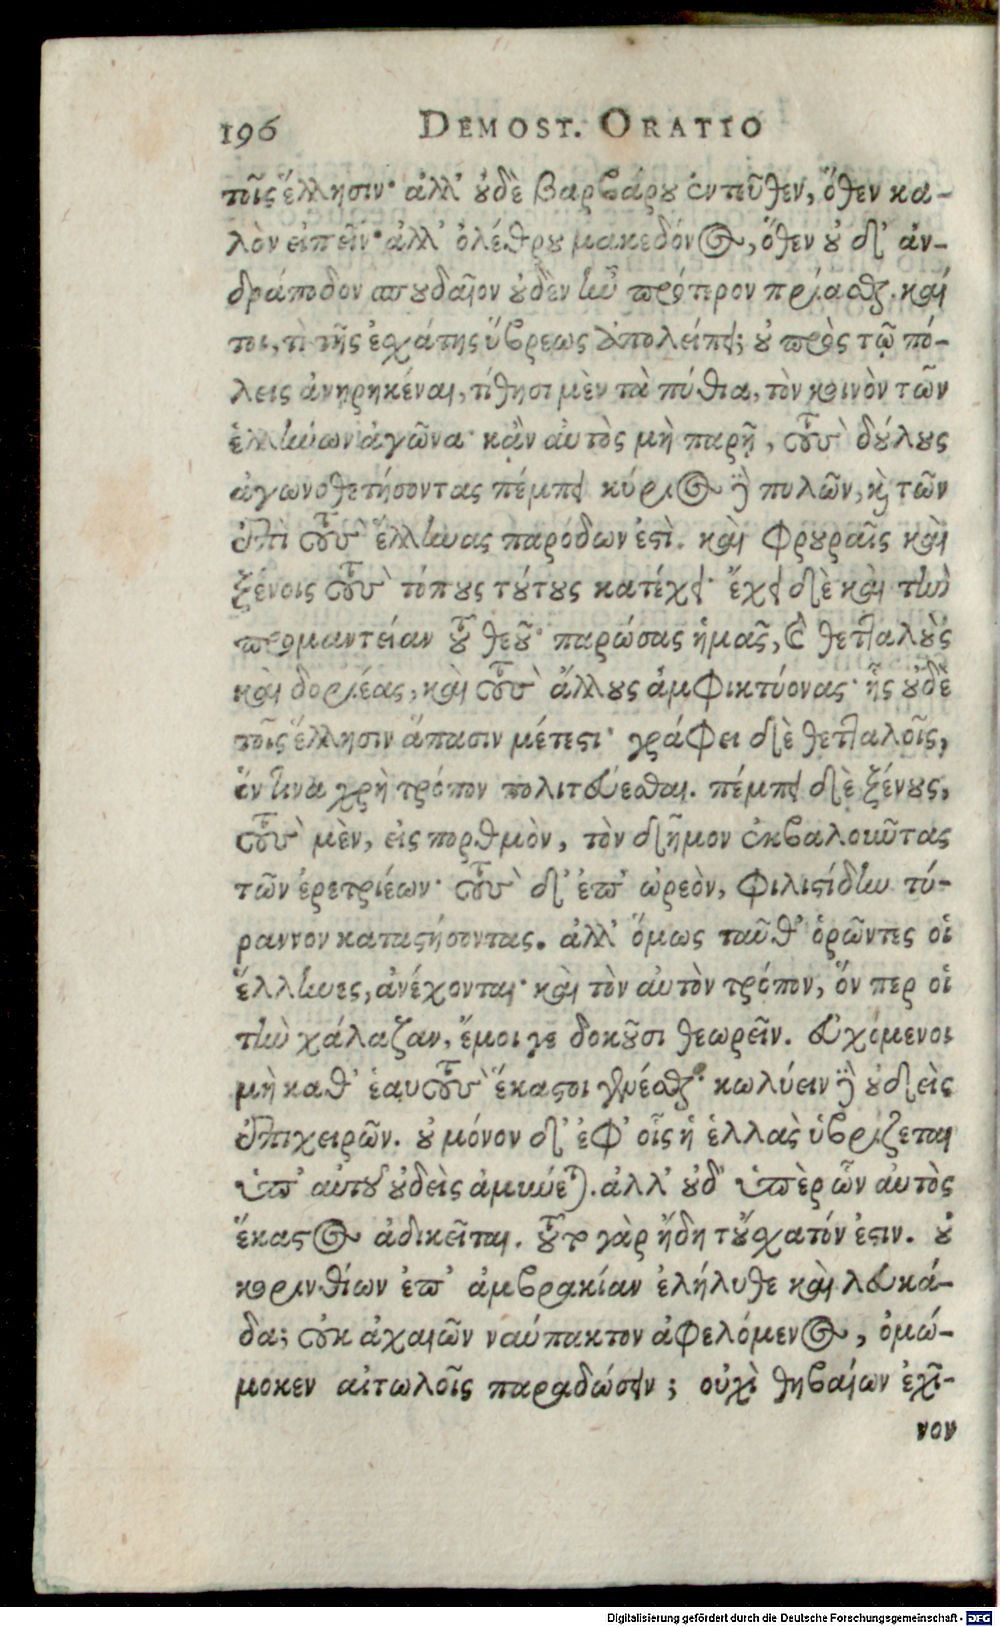 196 DEMOST. ORATIO
τοῖς ἕλλησιν· ἀλλ' οὐδὲ βαρβάρου ἐντεῦθεν, ὅθεν κα-
λὸν εἰπεῖν· ἀλλ' ὀλέθρου μακεδόνος, ὅθεν οὐδ' ἀν-
δράποδον σπουδαῖον οὐδὲν ἦν πρότερον πρίασθαι. καί
τοι, τὶ τῆς ἐσχάτης ὕβρεως ἀπολείπει; οὐ πρὸς τῷ πό-
λεις ἀνῃρηκέναι, τίθησι μὲν τὰ πύθια, τὸν κοινὸν τῶν
ἑλλήνων ἀγῶνα· κἂν αὐτὸς μὴ παρῇ, τοὺς δούλους
ἀγωνοθετήσοντας πέμπει κύριος δὲ πυλῶν, καὶ τῶν
ἐπὶ τοὺς ἕλληνας παρόδων ἐστὶ. καὶ φρουραῖς καὶ
ξένοις τοὺς τόπους τούτους κατέχει· ἔχει δὲ καὶ τὴν
προμαντείαν τοῦ θεοῦ· παρώσας ἡμᾶς, καὶ θετταλοὺς
καὶ δοριέας, καὶ τοὺς ἄλλους ἀμφικτύονας· ἧς οὐδὲ
τοῖς ἕλλησιν ἅπασιν μέτεστι· γράφει δὲ θετταλοῖς,
ὅν τινα χρὴ τρόπον πολιτεύεσθαι. πέμπει δὲ ξένους,
τοὺς μὲν, εἰς πορθμὸν, τὸν δῆμον ἐκβαλοιῶτας
τῶν ἐρετριέων· τοὺς δ' ἐπ' ὠρεὸν, φιλιστίδην τύ-
ραννον καταστήσοντας. ἀλλ' ὅμως ταῦθ' ὁρῶντες οἱ
ἕλληνες, ἀνέχονται· καὶ τὸν αὐτὸν τρόπον, ὅν περ οἱ
τὴν χάλαζαν, ἔμοι γε δοκοῦσι θεωρεῖν. εὐχόμενοι
μὴ καθ' ἑαυτοὺς ἕκαστοι γενέσθαι· κωλύειν δὲ οὐδεὶς
ἐπιχειρῶν. οὐ μόνον δ' ἐφ' οἷς ἡ ἑλλὰς ὑβρίζεται
ὑπ' αὐτοῦ οὐδεὶς ἀμύνεται. ἀλλ' οὐδ' ὑπὲρ ὧν αὐτὸς
ἕκαστος ἀδικεῖται. τοῦτο γὰρ ἤδη τοὔσχατόν ἐστιν. οὐ
κορινθίων ἐπ' ἀμβρακίαν ἐλήλυθε καὶ λευκά-
δα; οὐκ ἀχαιῶν ναύπακτον ἀφελόμενος, ὀμώ-
μοκεν αἰτωλοῖς παραδώσειν; οὐχὶ θηβαίων ἐχῖ-
νον
Digitalisierung gefördert durch die Deutsche Forschungsgemeinschaft - DFG